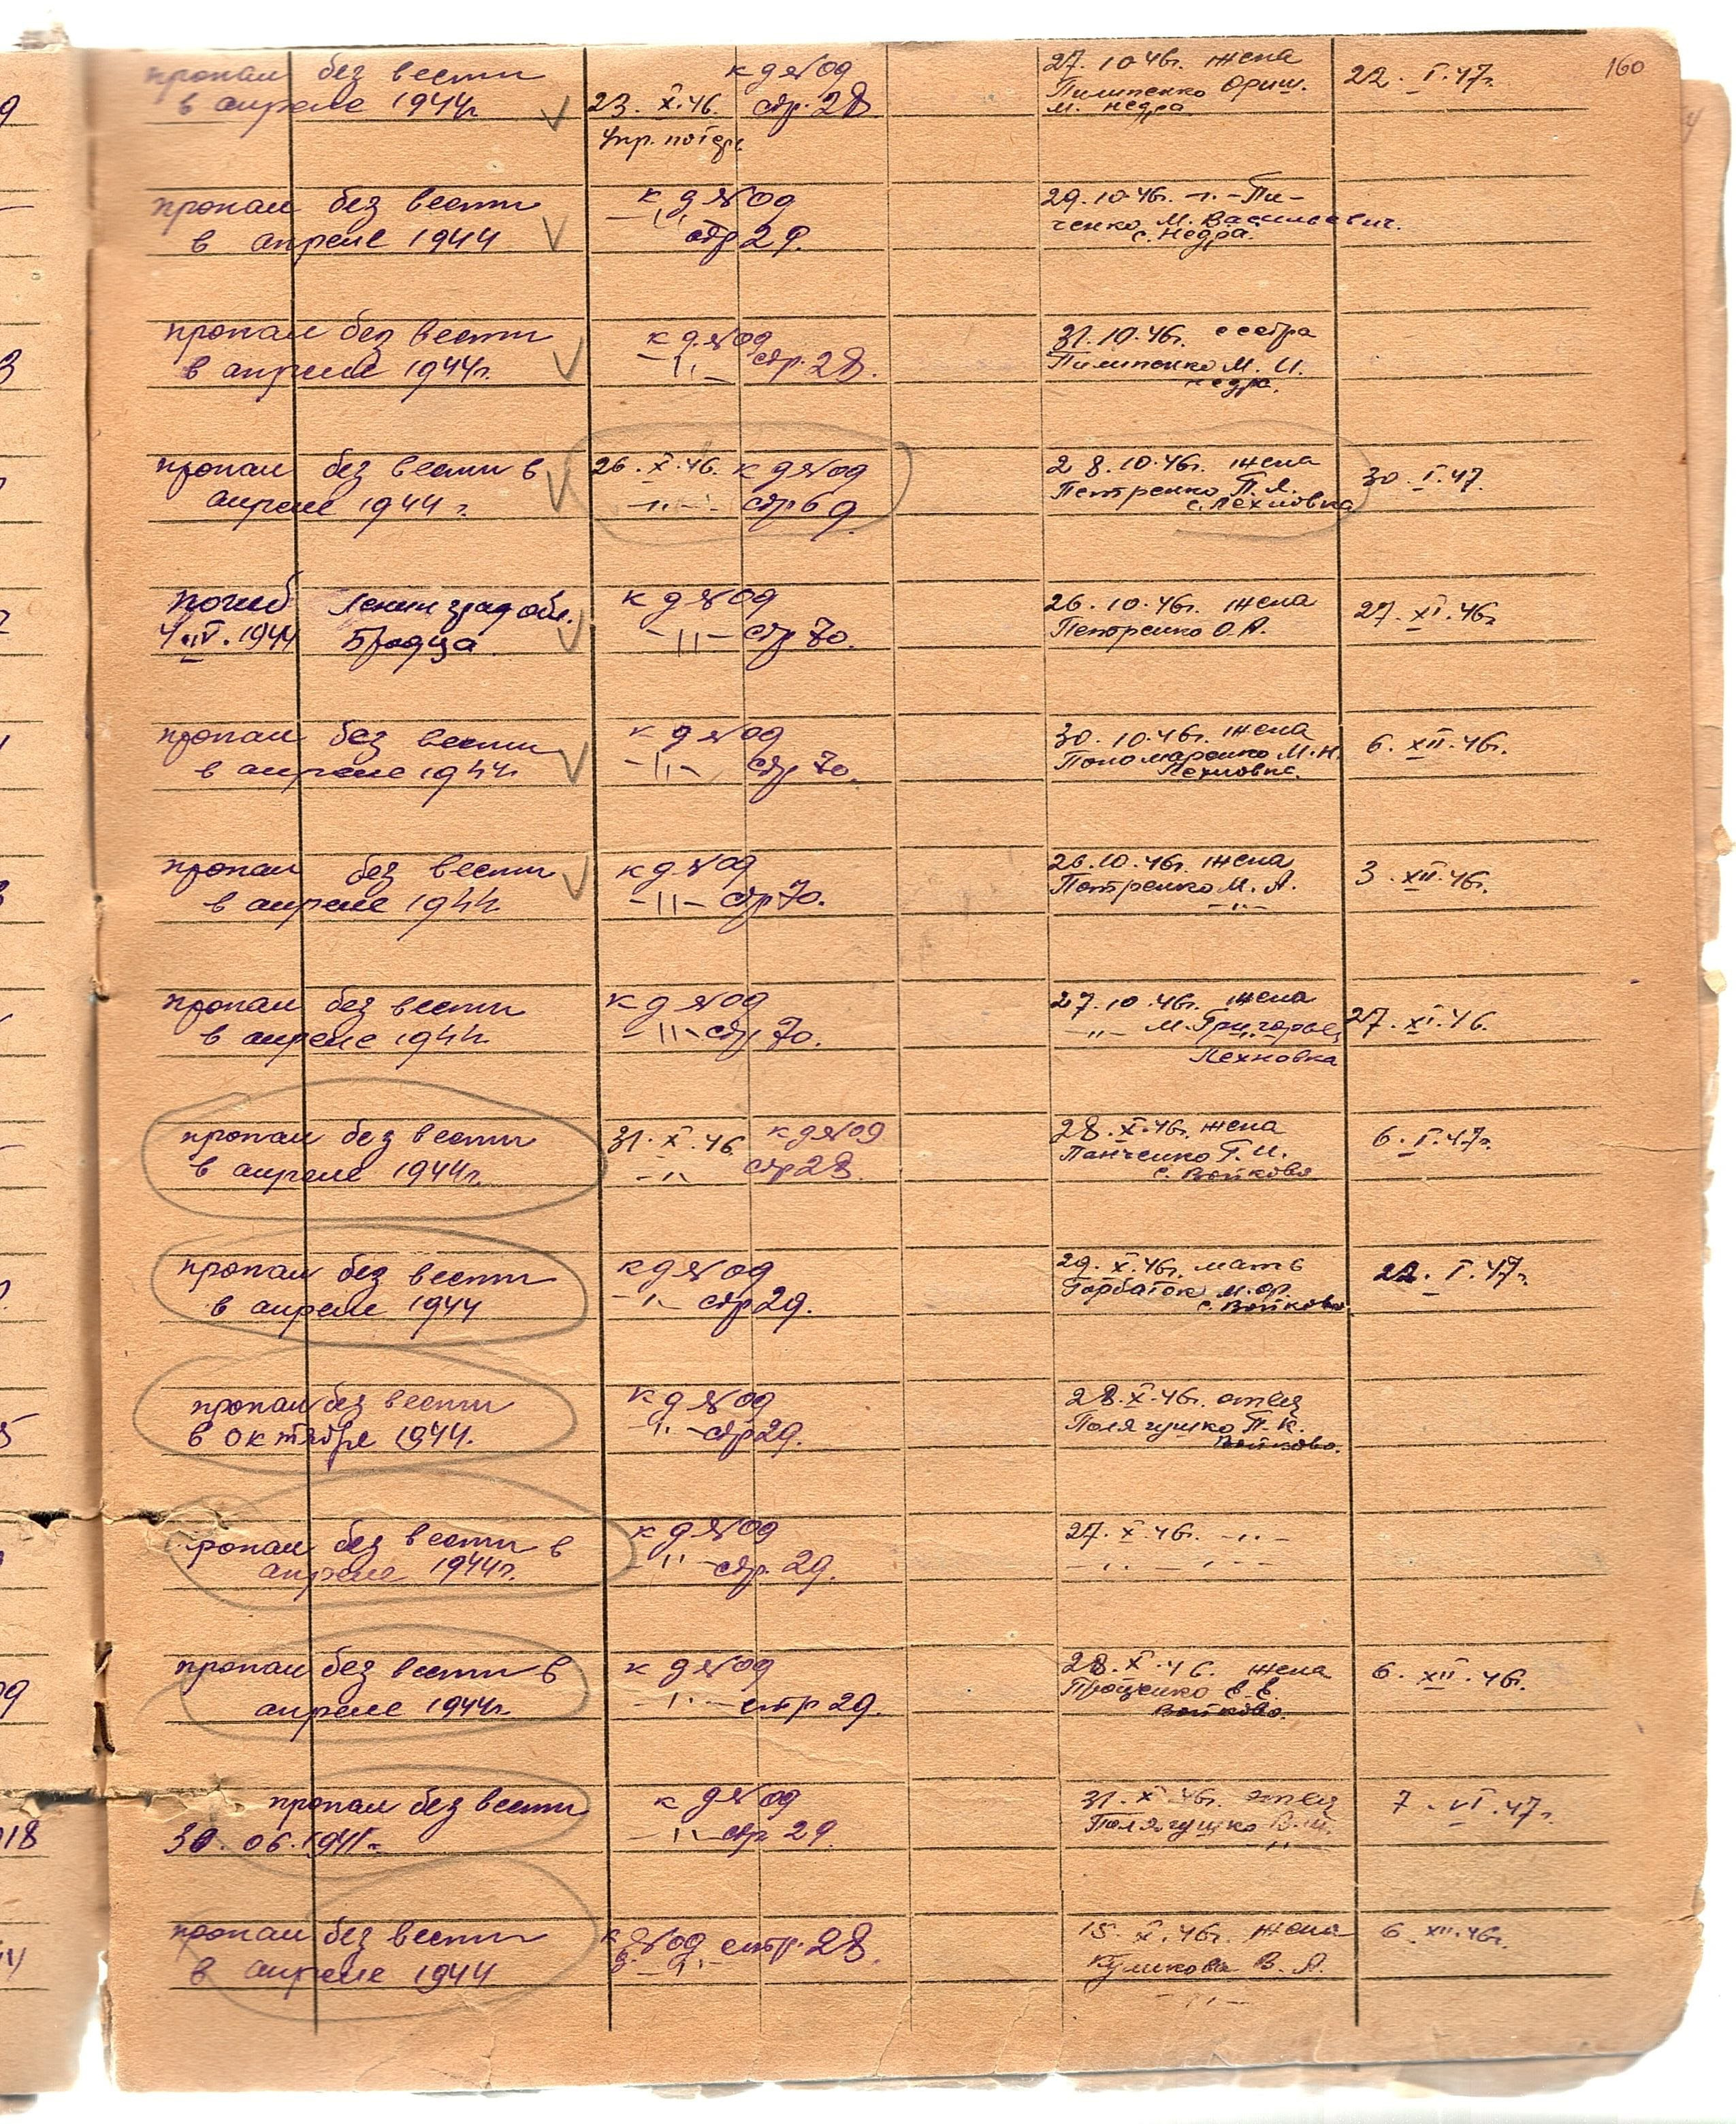 160
пропал без вести
в апреле 1944г
23. X. 46. к д №09 стр. 28
Упр. потерь
27. 10 46г. жена
Пилипенко Ориш.
м. Недра.
22. I. 47г.
пропал без вести
в апреле 1944
к д №09
—〃— стр 29.
29. 10. 46г. —〃— Пи-
ченко М. Васильевич.
с. Недра.
пропал без вести
в апреле 1944г.
к д №09
—〃— стр. 28.
31. 10. 46г. сестра
Пилипенко М. И.
Недра.
пропал без вести в
апреле 1944 г.
26. X. 46. к д №09
—〃— стр 69
28. 10. 46г. жена
Петренко П. Я.
с. Лехновка
30. I. 47.
погиб Ленинград обл.
4. IV. 1944 Бродца
к д №09
—〃— стр 70.
26. 10. 46г. жена
Петренко О. А.
27. XI. 46г
пропал без вести
в апреле 1944г
к д №09
—〃— стр 70.
30. 10. 46г. жена
Пономаренко М. Н.
Лехновка.
6. XII. 46г.
пропал без вести
в апреле 1944.
к д №09
—〃— стр 70.
26. 10. 46г. жена
Петренко М. А.
—〃—
3. XII. 46г.
пропал без вести
в апреле 1944.
к д №09
—〃— стр 70.
27. 10. 46г. жена
—〃— М. Григорьев
Лехновка
27. XI. 46.
пропал без вести
в апреле 1944г.
31. X. 46 к д №09
—〃— стр 28.
28. X. 46г. жена
Панченко Г. И.
с. Войково
6. I. 47г.
пропал без вести
в апреле 1944
к д №09
—〃— стр 29.
29. X. 46г. мать
Горбаток М. Ф.
с. Войково
22. I. 47г.
пропал без вести
в октябре 1944.
к д №09
—〃— стр 29.
28. X. 46г. отец
Полягушко П. К.
Войково.
пропал без вести в
апреле 1944г.
к д №09
—〃— стр. 29.
27. X. 46г. —〃—
—〃— —〃—
пропал без вести в
апреле 1944г.
к д №09
—〃— стр 29.
28. X. 46. жена
Проценко Е. Е.
Войково.
6. XII. 46г.
пропал без вести
30. 06. 1941г.
к д №09
—〃— стр 29.
31. X. 46г. отец
Полягушко
—〃—
7. VI. 47г.
пропал без вести
в апреле 1944
к д №09 стр. 28.
—〃—
15. X. 46г. жена
Куликова В. А.
—〃—
6. XII. 46г.